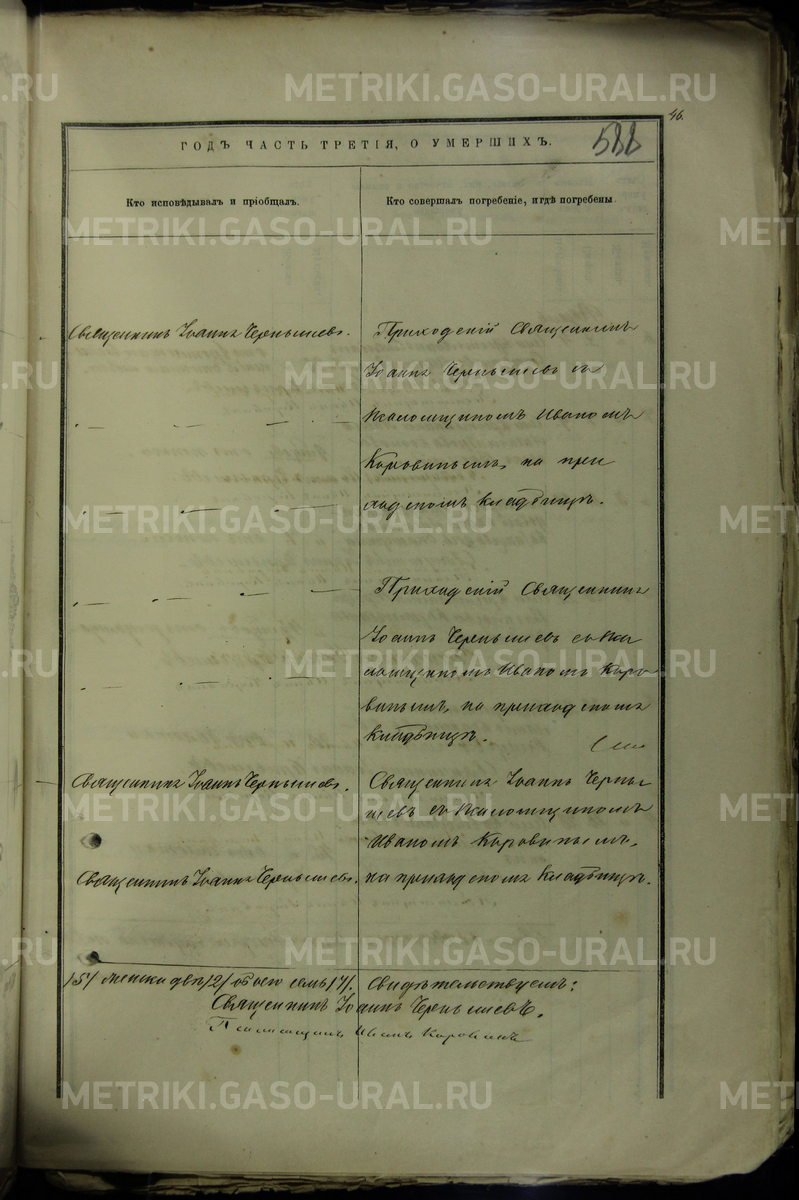 46.
588
ГОДЪ ЧАСТЬ ТРЕТІЯ, О УМЕРШИХЪ.
Кто исповѣдывалъ и пріобщалъ.
Кто совершалъ погребеніе, и гдѣ погребены
Священникъ Іоаннъ Чернышевъ.
Приходскій Священникъ
Іоаннъ Чернышевъ съ
Псаломщикомъ Иваномъ
Коровинымъ, на при
ходскомъ кладбищѣ.
Приходскій Священникъ
Іоаннъ Чернышевъ съ Пса
ломщикомъ Иваномъ Коро
винымъ, на приходскомъ
кладбищѣ.
Священникъ Іоаннъ Чернышевъ.
Священникъ Іоаннъ Черны
шевъ съ Псаломщикомъ
Иваномъ Коровинымъ,
Священникъ Іоаннъ Чернышевъ.
на приходскомъ кладбищѣ.
/5/ женска два /2/ обоего семь /7/. Свидѣтельствуемъ:
Священникъ Іоаннъ Чернышевъ.
Псаломщикъ Иванъ Коровинъ
METRIKI.GASO-URAL.RU